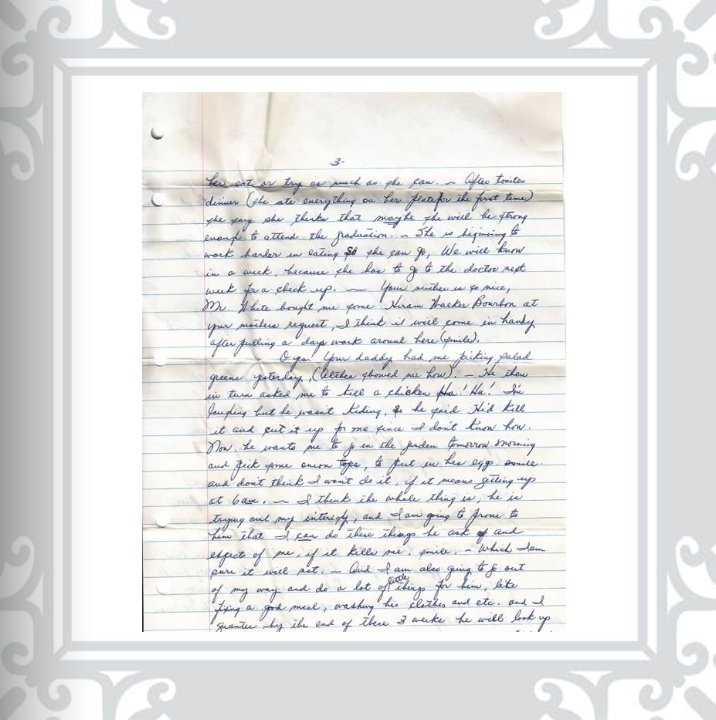 3-
her eat or try as much as she can. ~ After tonites
dinner (she ate everything on her plate for the first time)
she says she thinks that maybe she will be strong
enough to attend the graduation. ~ She is beginning to
work harder in eating so she can go, We will know
in a week, because she has to go to the doctor next
week for a check up. ~ Your mother is so nice,
Mr. White bought me some Hiram Walker Bourbon at
your mothers request, I think it will come in handy
after pulling a days work around here (smile).
O yes. Your daddy had me picking salad
greens yesterday, (Althea showed me how). ~ He then
in turn asked me to kill a chicken Ha! Ha! I'm
laughing but he wasnt kiding, so he said He'd kill
it and cut it up for me since I don't know how.
Now, he wants me to go in the garden tomorrow morning
and pick some onion tops, to put in his eggs
and don't think I won't do it, if it means getting up
at 6am. ~ I think the whole thing is, he is
trying out my , and I am going to prove to
him that I can do these things he ask of and
expects of me, if it kills me. smile. ~ Which I am
sure it will not. ~ And I am also going to go out
of my way and do a lot of little things for him, like
fixing a good meal, washing his clothes and etc. and I
by the end of these 3 weeks he will look up